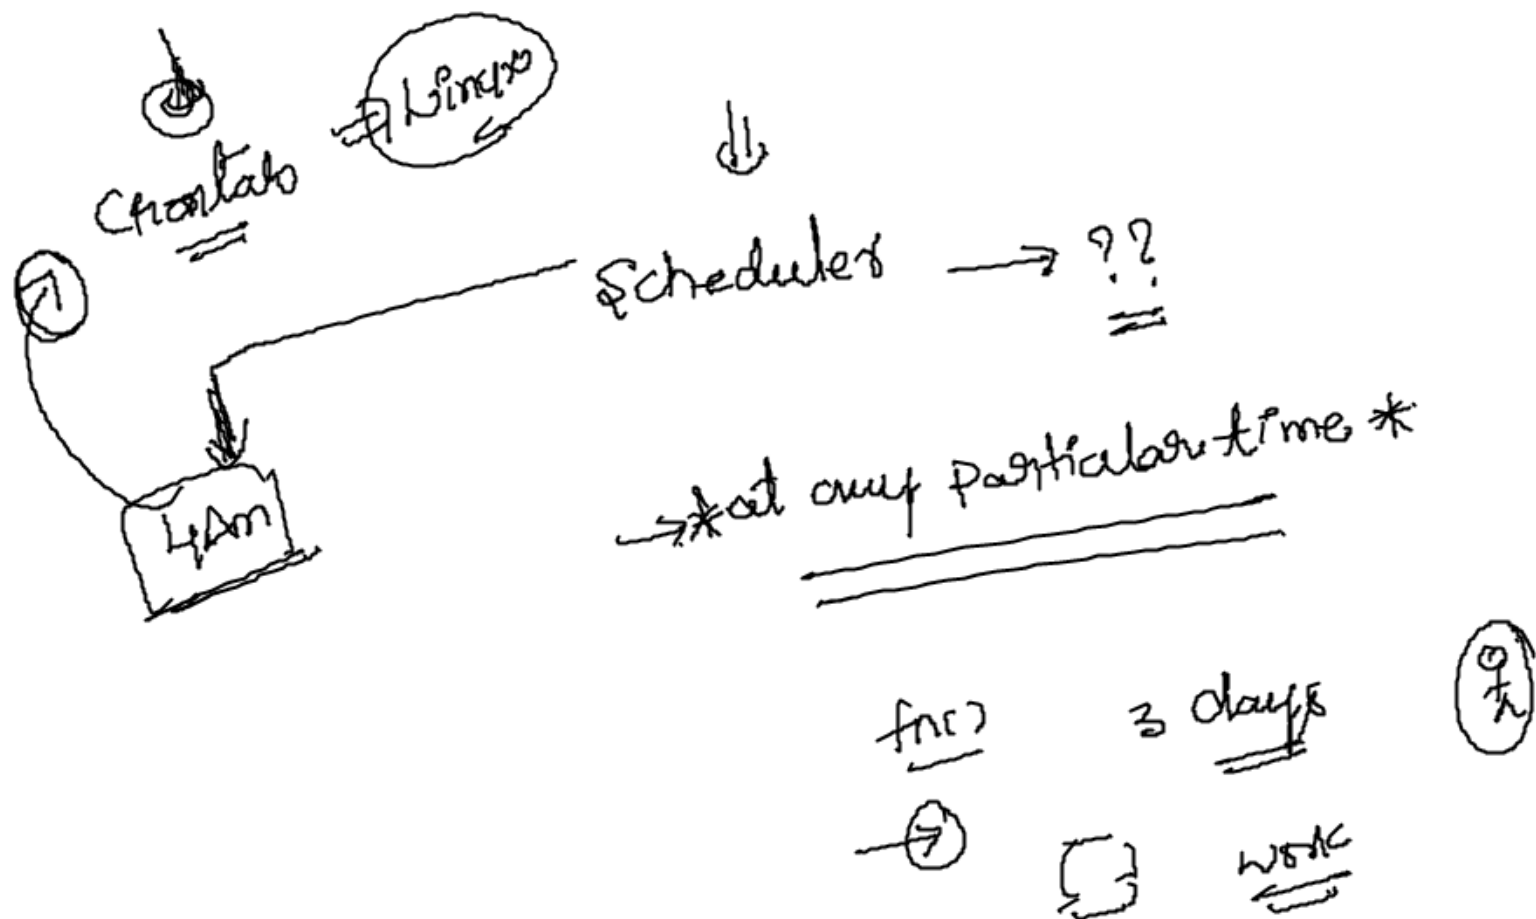 Linux
Crontab
Scheduler → ??
4Am
→ *at any particular time *
fn() 3 days
work